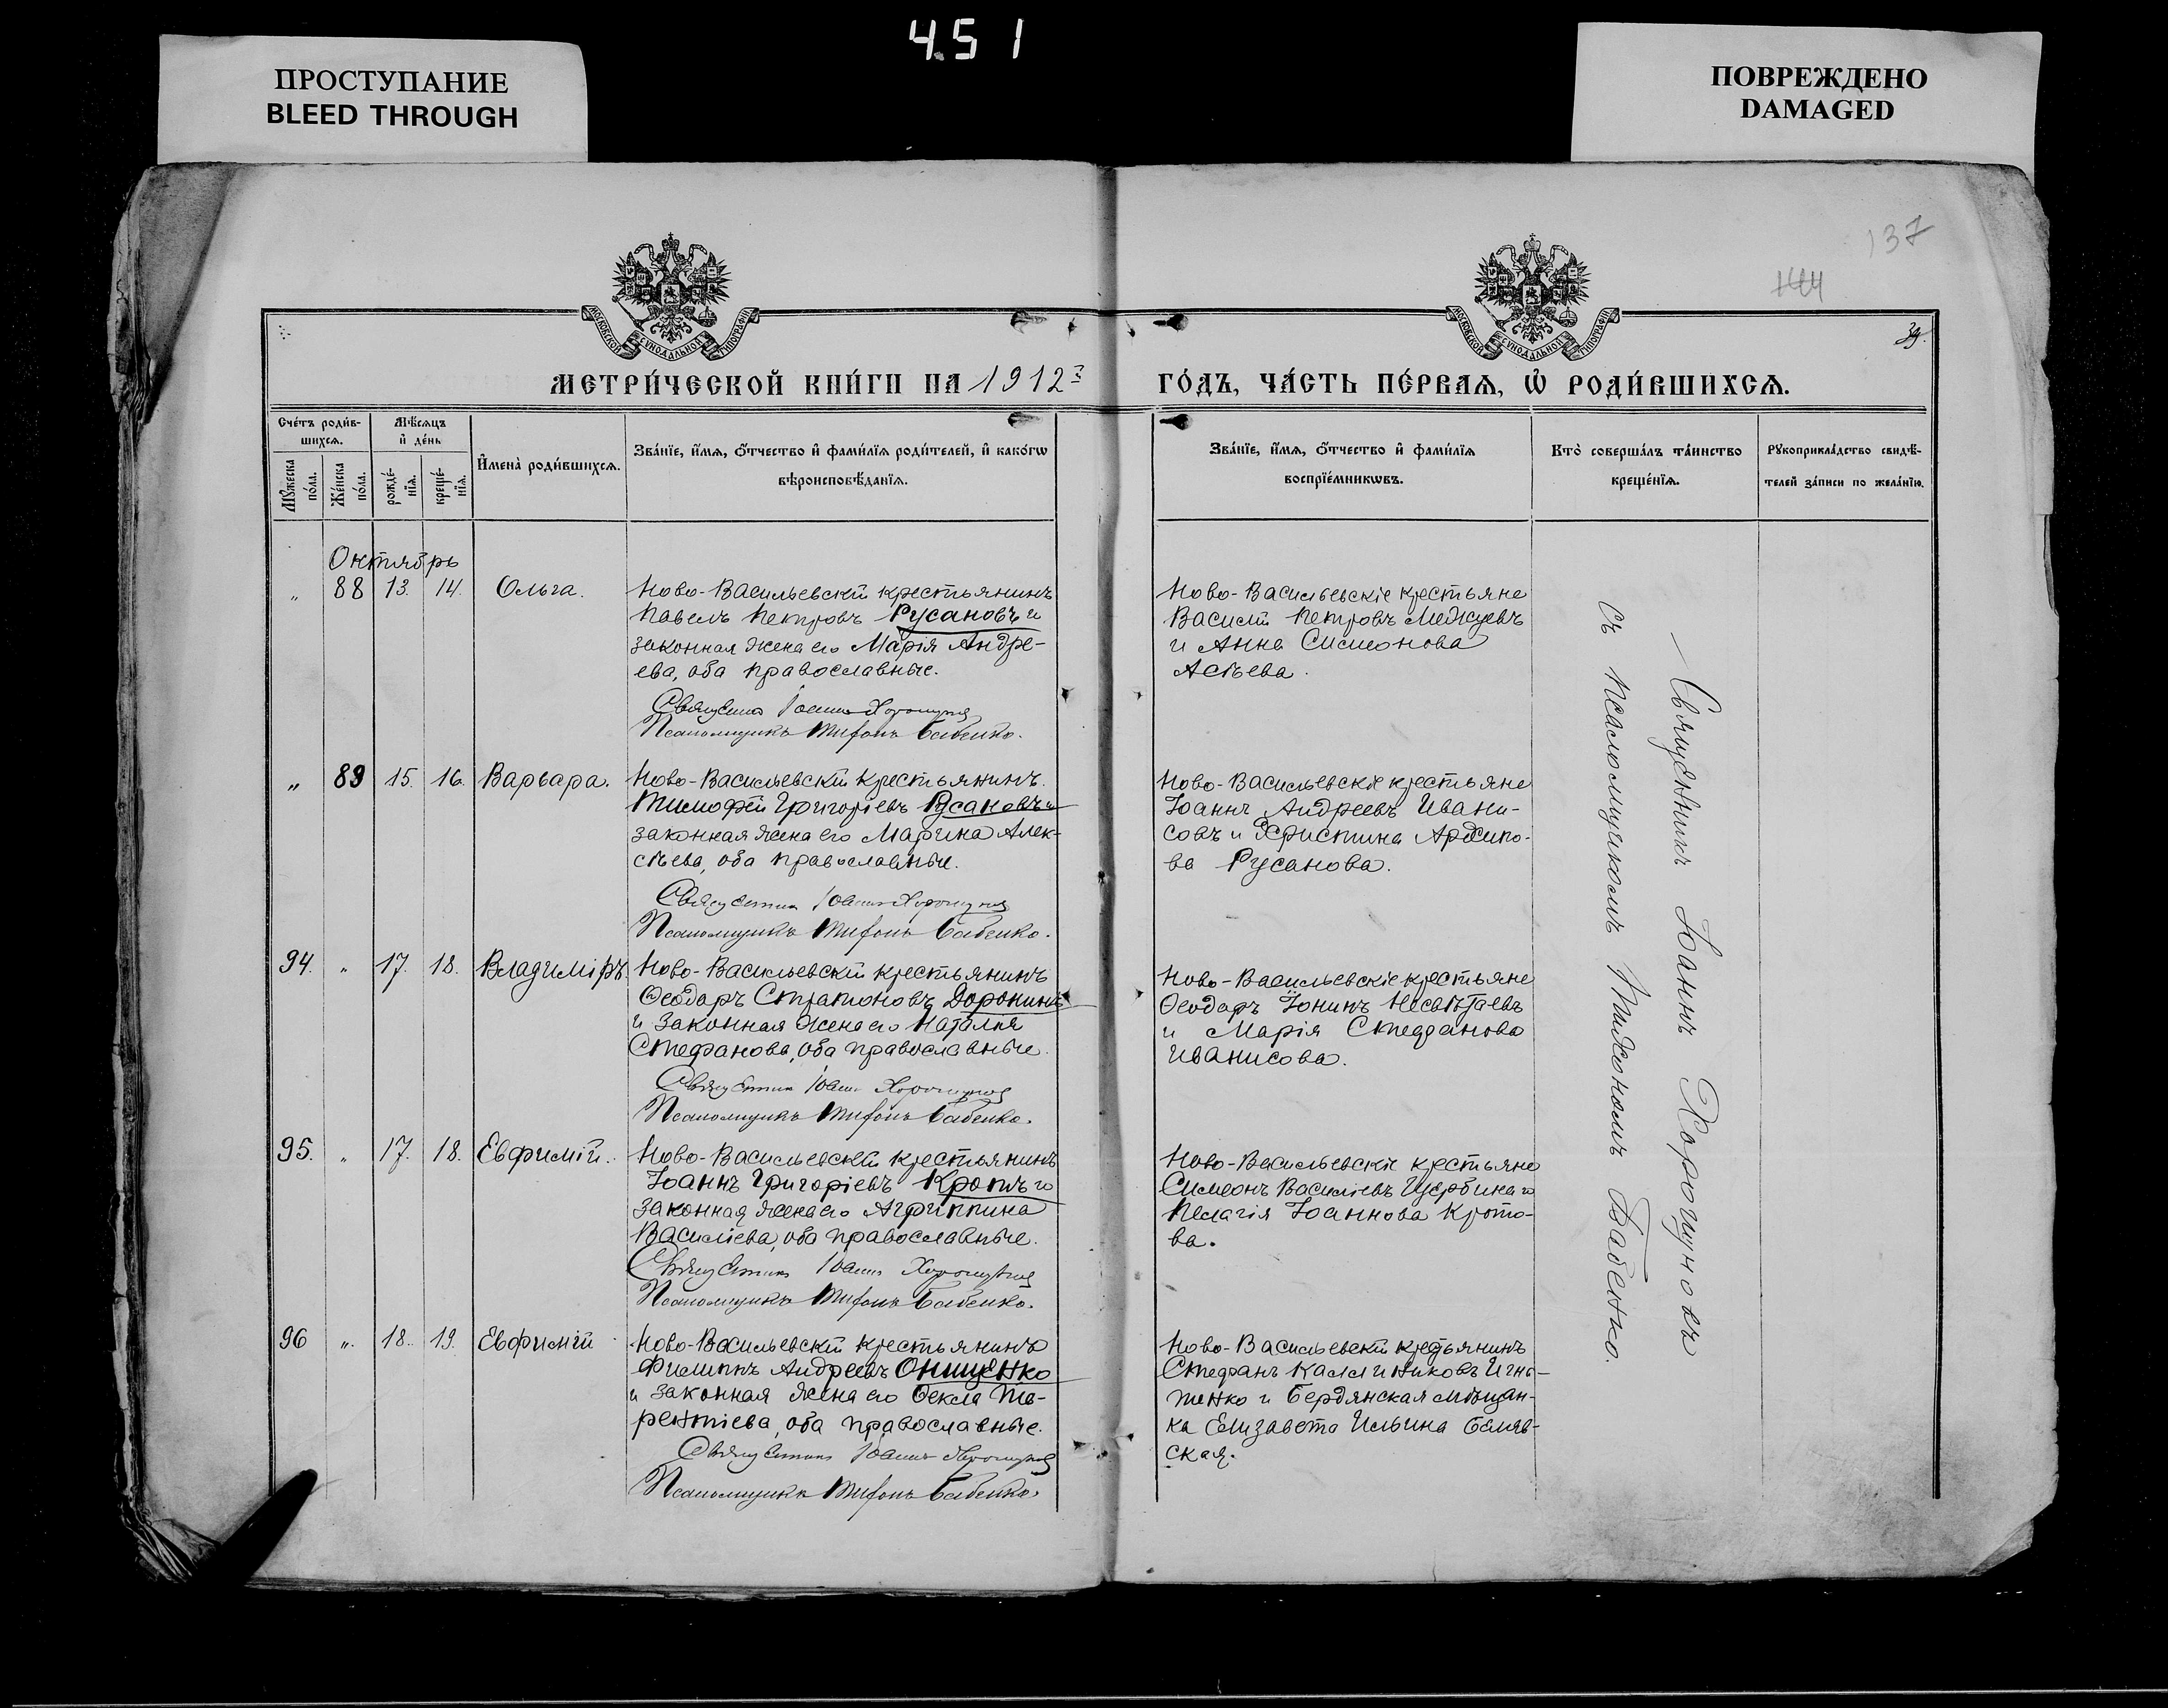 451
ПРОСТУПАНИЕ
BLEED THROUGH
ПОВРЕЖДЕНО
DAMAGED
137
144
39.
МОСКОВСКОЙ СѴНОДАЛЬНОЙ ТИПОГРАФІИ
МОСКОВСКОЙ СѴНОДАЛЬНОЙ ТИПОГРАФІИ
МЕТРИ́ЧЕСКОЙ КНИ́ГИ НА 1912 ГО́ДЪ, ЧА́СТЬ ПЕ́РВАѦ, Ѡ҆ РОДИ́ВШИХСѦ.
Сче́тъ роди́в-
шихсѧ.
Мꙋ́жеска
по́ла.
Же́нска
по́ла.
Мѣ́сѧцъ
и҆ де́нь
рожде́-
нїѧ.
креще́-
нїѧ.
И҆мена̀ роди́вшихсѧ.
Зва́нїе, и҆́мѧ, ѻ҆́тчество и҆ фами́лїѧ роди́телей, и҆ како́гѡ
вѣроисповѣ́данїѧ.
Зва́нїе, и҆́мѧ, ѻ҆́тчество и҆ фами́лїѧ
воспрїе́мникѡвъ.
Кто̀ соверша́лъ та́инство
креще́нїѧ.
Рꙋкоприкла́дство свидѣ́-
телей за́писи по жела́нїю.
Октябрь
„ 88 13. 14. Ольга.
Ново-Васильевскій крестьянинъ
Павелъ Петровъ Русановъ и
законная жена его Марія Андре-
ева, оба православные.
Священникъ Іоаннъ Хорошуновъ
Псаломщикъ Тихонъ Бабенко.
Ново-Васильевскіе крестьяне
Василій Петровъ Межуевъ
и Анна Симеонова
Асѣева.
„ 89 15. 16. Варвара.
Ново-Васильевскій крестьянинъ
Тимофей Григоріевъ Русановъ и
законная жена его Марина Алек-
сѣева, оба православные.
Священникъ Іоаннъ Хорошуновъ
Псаломщикъ Тихонъ Бабенко.
Ново-Васильевскіе крестьяне
Іоаннъ Андреевъ Ивани-
совъ и Христина Архипо-
ва Русанова.
94. „ 17. 18. Владиміръ.
Ново-Васильевскій крестьянинъ
Ѳеодоръ Стратоновъ Доронинъ
и законная жена его Наталія
Стефанова, оба православные.
Священникъ Іоаннъ Хорошуновъ
Псаломщикъ Тихонъ Бабенко.
Ново-Васильевскіе крестьяне
Ѳеодоръ Іонинъ Несвѣтаевъ
и Марія Стефанова
Иванисова.
95. „ 17. 18. Евфимій.
Ново-Васильевскій крестьянинъ
Іоаннъ Григоріевъ Кротъ и
законная жена его Агриппина
Василіева, оба православные.
Священникъ Іоаннъ Хорошуновъ
Псаломщикъ Тихонъ Бабенко.
Ново-Васильевскіе крестьяне
Симеонъ Василіевъ Щербина и
Пелагія Іоаннова Крото-
ва.
96 „ 18. 19. Евфимій
Ново-Васильевскій крестьянинъ
Филиппъ Андреевъ Онищенко
и законная жена его Ѳекла Те-
рентіева, оба православные.
Священникъ Іоаннъ Хорошуновъ
Псаломщикъ Тихонъ Бабенко.
Ново-Васильевскій крестьянинъ
Стефанъ Каллиниковъ Игна-
тенко и Бердянская мѣщан-
ка Елизавета Ильина Беляв-
ская.
Священникъ Іоаннъ Хорошуновъ
съ псаломщикомъ Тихономъ Бабенко.